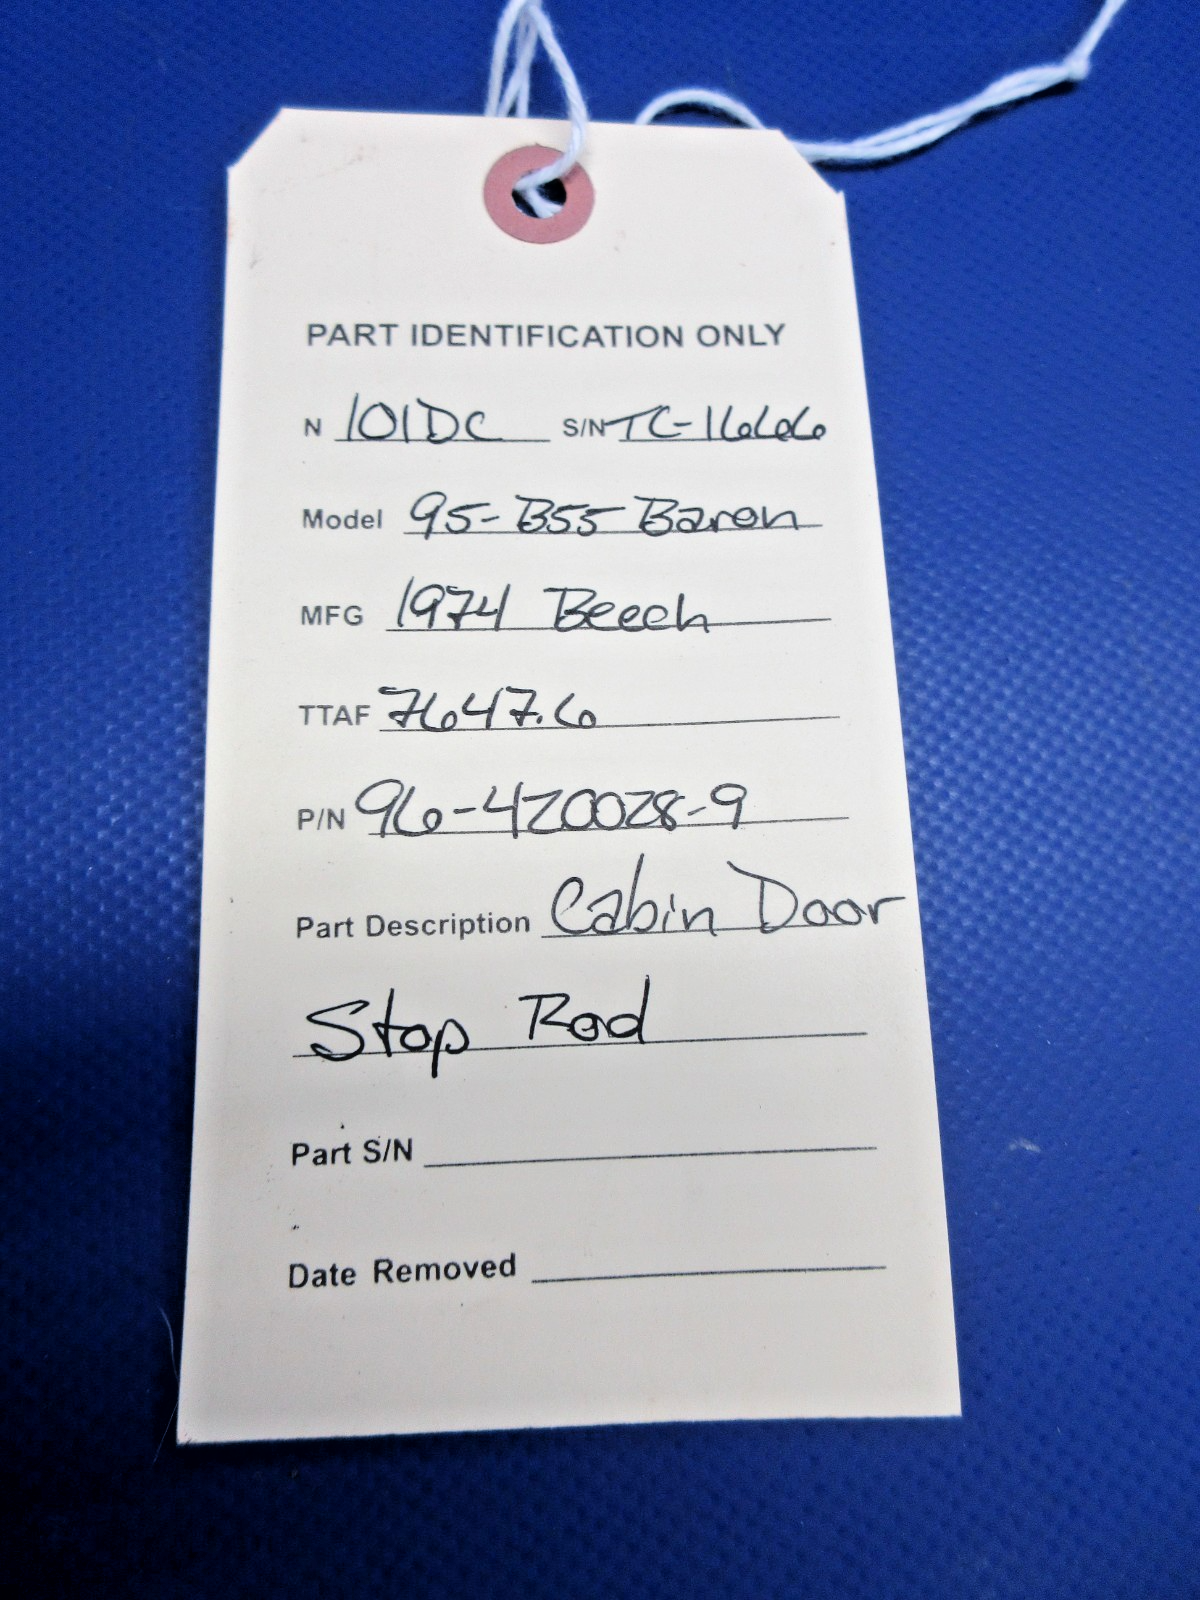 PART IDENTIFICATION ONLY
N 101DC S/N TC-1666
Model 95-B55 Baron
MFG 1974 Beech
TTAF 7647.6
P/N 96-420028-9
Part Description Cabin Door
Stop Rod
Part S/N
Date Removed